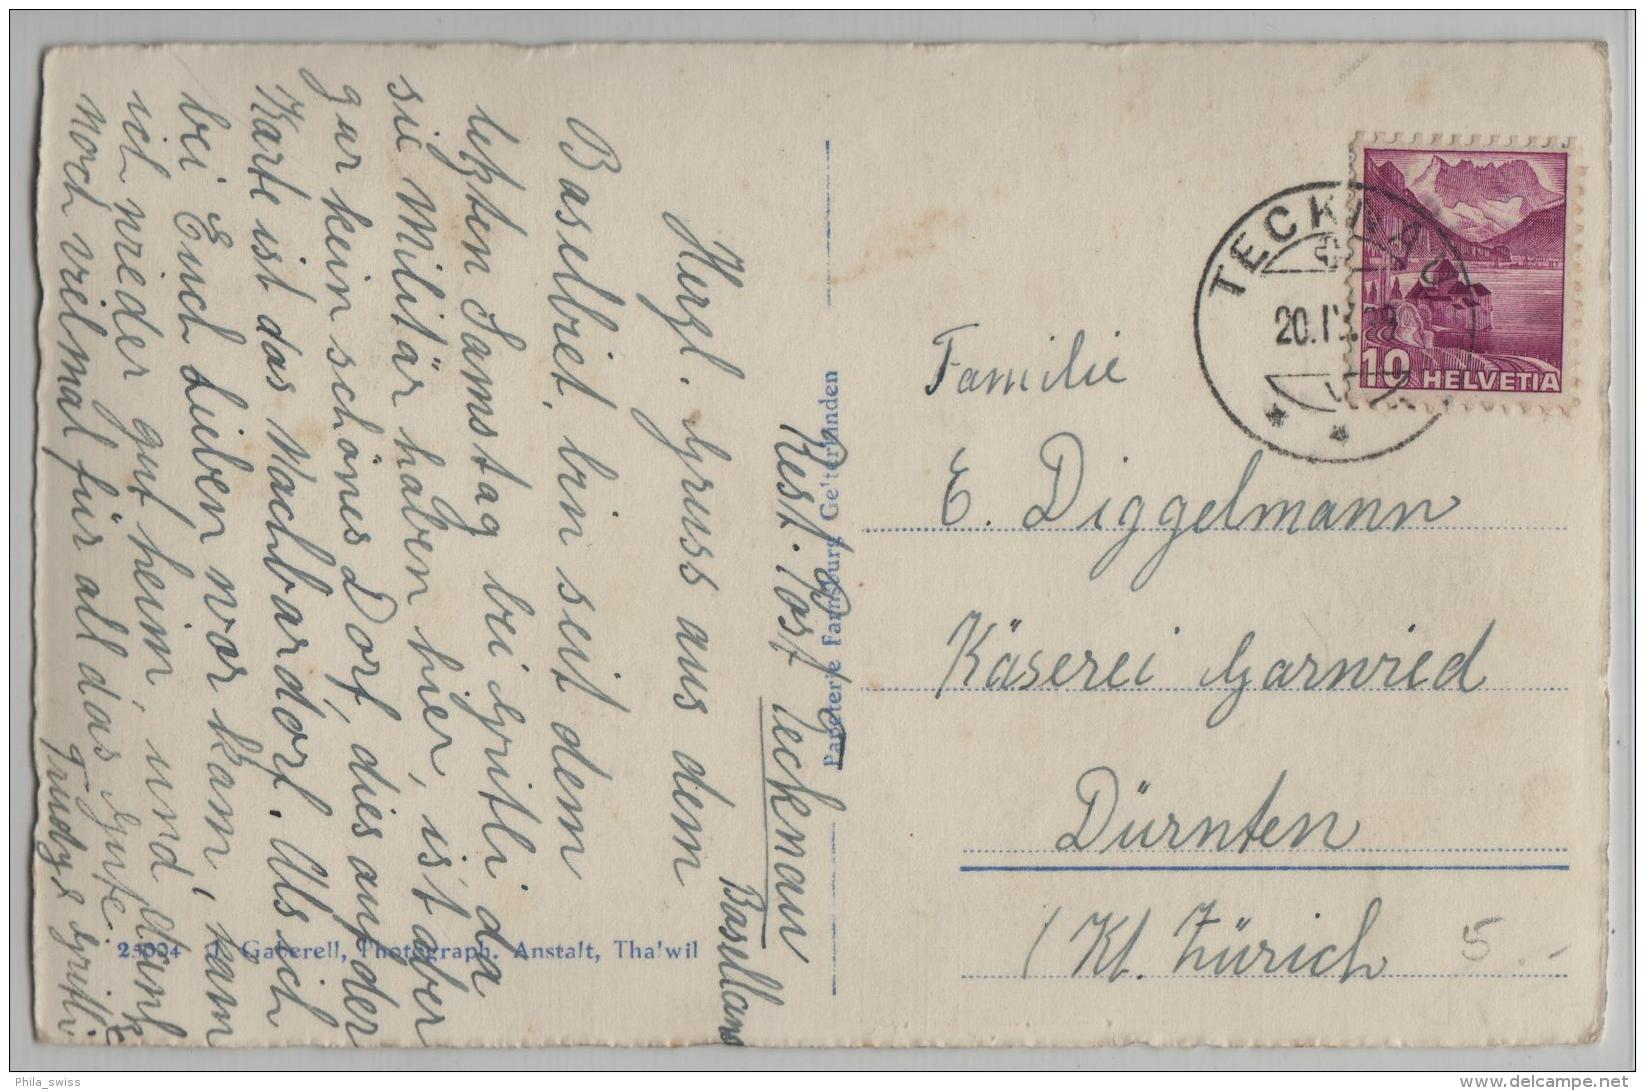 Rest. Post Tecknau
Baselland
Herzl. Gruss aus dem
Baselbiet, bin seit dem
letzten Samstag bei Gritli da
sie Militär haben hier, ist aber
gar kein schönes Dorf, dies auf der
Karte ist das Nachbardorf. Als ich
bei Euch Lieben vor kam, kam
ich wieder gut heim, und dank
noch vielmal für all das Gute.
Trudy & Gritli
Papeterie Farnsburg Gelterkinden
23004 J. Gaberell, Photograph. Anstalt, Thalwil
TECKNAU
20.IV.39
10 HELVETIA
Familie
E. Diggelmann
Käserei Garwied
Dürnten
(Kt. Zürich
5.-
Phila_swiss
www.delcampe.net